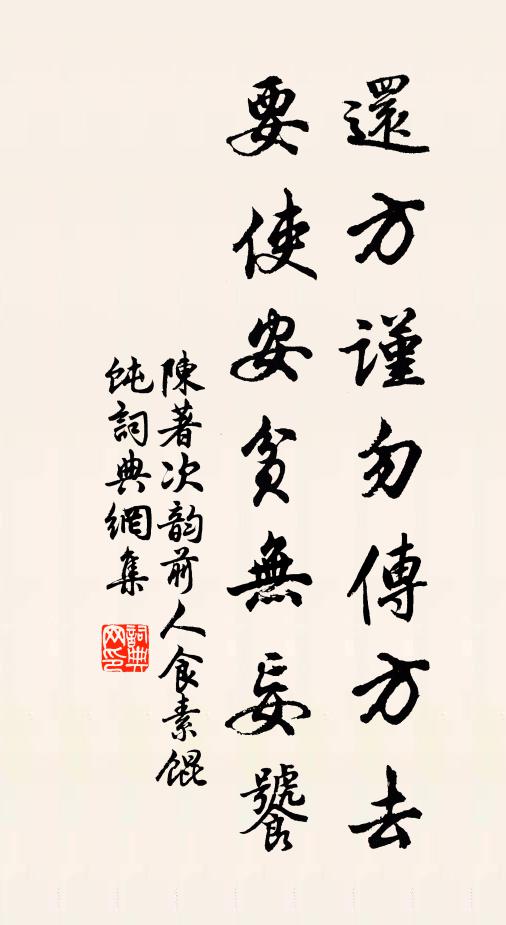 還方謹勿傳方去
要使安貧無妄饕
陳著次韵前人食素餛
飩詞典網集
詞典
网印